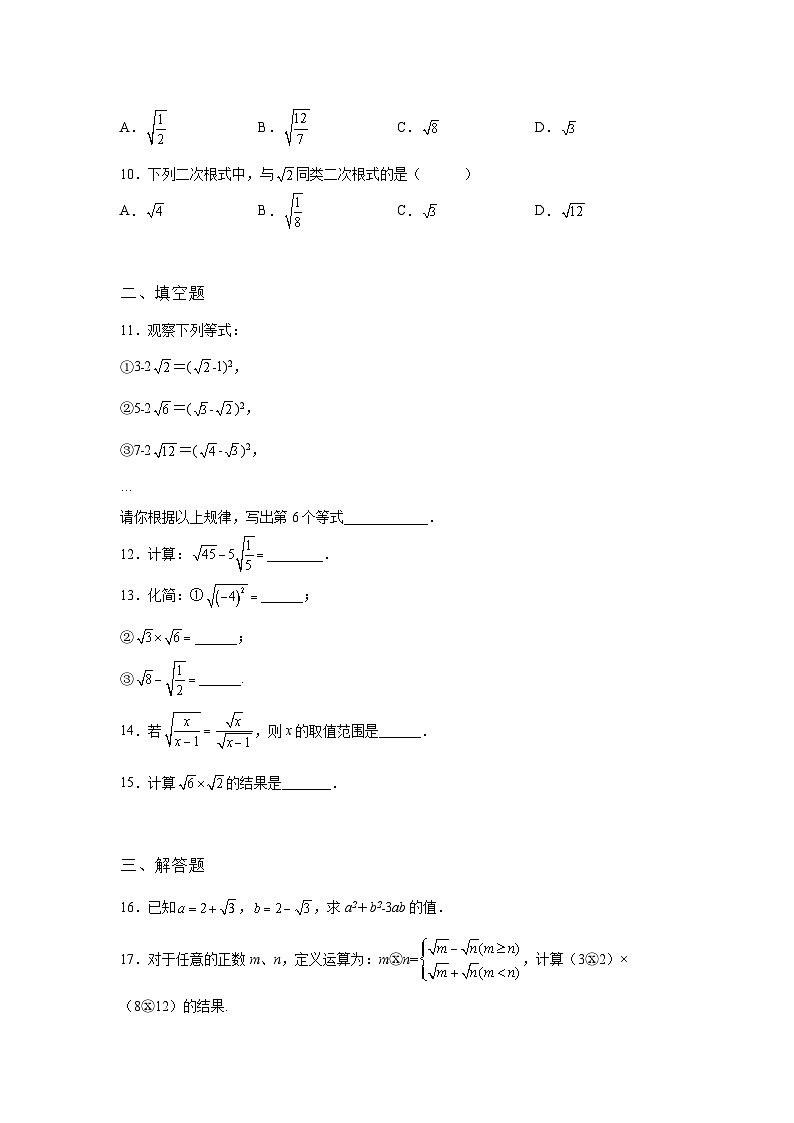 A．√(1/2) B．√(12/7) C．√8 D．√3
10．下列二次根式中，与√2同类二次根式的是（ ）
A．√4 B．√(1/8) C．√3 D．√12
二、填空题
11．观察下列等式：
①3-2√2＝(√2-1)²，
②5-2√6＝(√3-√2)²，
③7-2√12＝(√4-√3)²，
…
请你根据以上规律，写出第 6 个等式____________．
12．计算：√45−5√(1/5)=________．
13．化简：①√((−4)²)=______；
②√3×√6=______；
③√8−√(1/2)=______.
14．若√(x/(x−1))=√x/√(x−1)，则 x 的取值范围是______．
15．计算√6×√2的结果是_______．
三、解答题
16．已知a=2+√3，b=2−√3，求 a²＋b²-3ab 的值．
17．对于任意的正数 m、n，定义运算为：m⊗n={√m−√n(m≥n) √m+√n(m<n)，计算（3⊗2）×
（8⊗12）的结果.